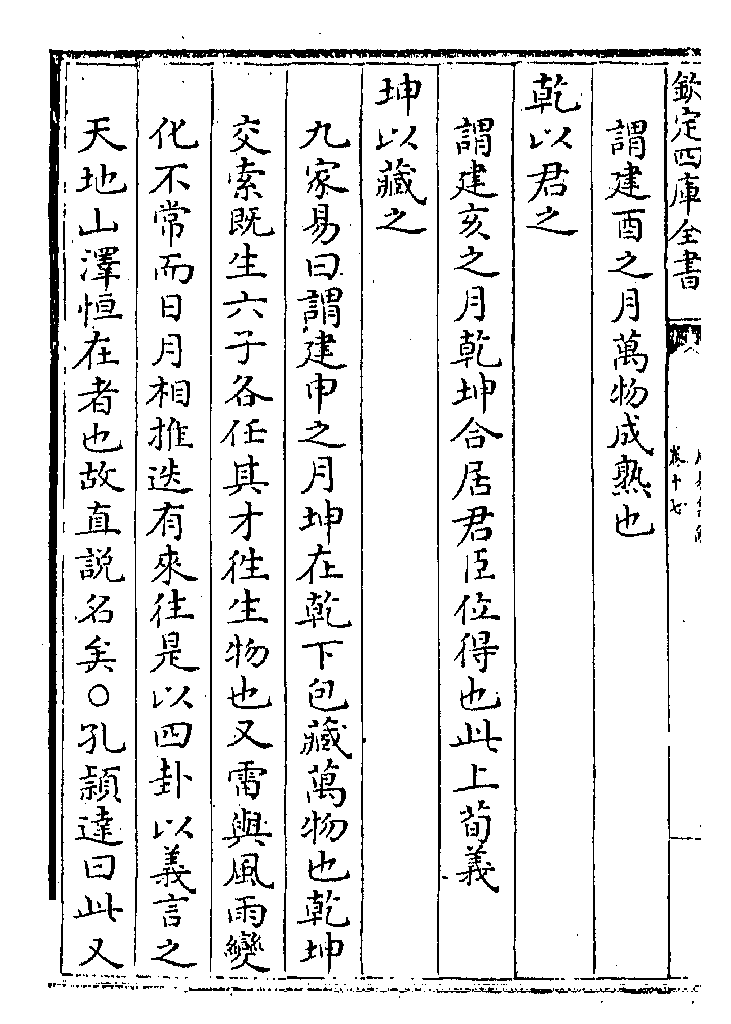 欽定四庫全書
卷十七
謂建酉之月萬物成熟也
乾以君之
謂建亥之月乾坤合居君臣位得也此上荀義
坤以藏之
九家易曰謂建申之月坤在乾下包藏萬物也乾坤
交索既生六子各任其才徃生物也又雷與風雨變
化不常而日月相推迭有來往是以四卦以義言之
天地山澤恒在者也故直説名矣○孔穎達曰此又